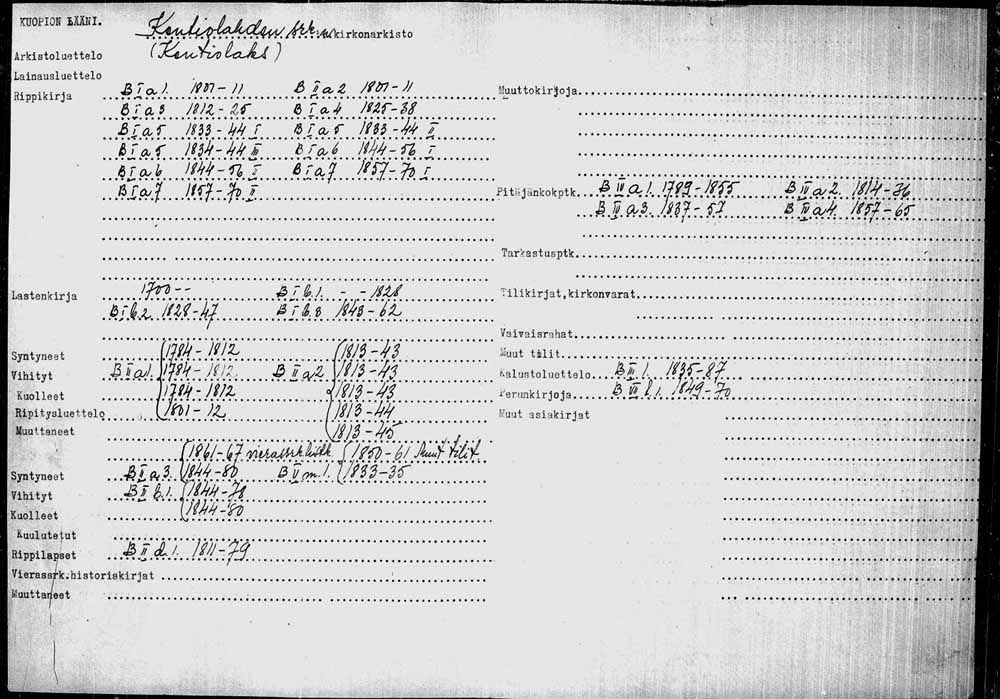 KUOPION LÄÄNI.
Kontiolahden srk:n kirkonarkisto
Arkistoluettelo (Kontiolaks)
Lainausluettelo
Rippikirja B I a 1. 1801-11 B II a 2 1801-11
B I a 3 1812-25 B I a 4 1825-38
B I a 5 1833-44 I B I a 5 1833-44 II
B I a 5 1834-44 III B I a 6 1844-56 I
B I a 6 1844-56 II B I a 7 1857-70 I
B I a 7 1857-70 II
Lastenkirja 1700-- B I b.1. - - 1828
B I b.2 1828-47 B I b.3 1843-62
Syntyneet 1784-1812 1813-43
Vihityt B II a 1. 1784-1812 B II a 2 1813-43
Kuolleet 1784-1812 1813-43
Ripitysluettelo 1801-12 1813-44
Muuttaneet 1813-45
1861-67 vierassrk.hist.k 1850-61 Muut tilit
Syntyneet B II a 3. 1844-80 B II m.1. 1833-35
Vihityt B II b.1. 1844-78
Kuolleet 1844-80
Kuulutetut
Rippilapset B II d.1. 1811-79
Vierassrk.historiakirjat
Muuttaneet
Muuttokirjoja
Pitäjänkokptk. B IV a 1. 1789-1855 B IV a 2. 1814-36
B IV a 3. 1837-57 B IV a 4. 1857-65
Tarkastusptk.
Tilikirjat,kirkonvarat
Vaivaisrahat.
Muut tilit
Kalustoluettelo B III 1. 1835-87
Perunkirjoja. B VII b.1. 1849-70
Muut asiakirjat